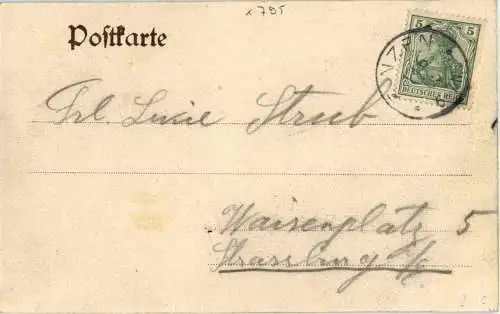 x 795
Postkarte
5 5
DEUTSCHES REICH
Frl. Lucie Straub
Waisenplatz 5
Strassburg i/E